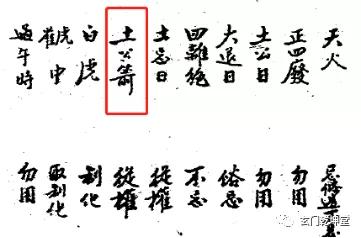 天火 忌修造葺
正四廢 勿用
土公日 勿用
大退日 俗忌
四離絶 不忌
土忌日 從權
土公箭 從權
白虎 制化
歲中 取制化
過午時 勿用
玄门教理堂